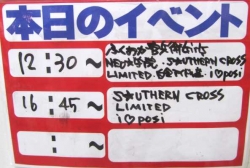 本日のイベント
12:30～
NEO S☆UTHERN CROSS
LIMITED i♡posi
16:45～
S☆UTHERN CROSS
LIMITED
i♡posi
:～